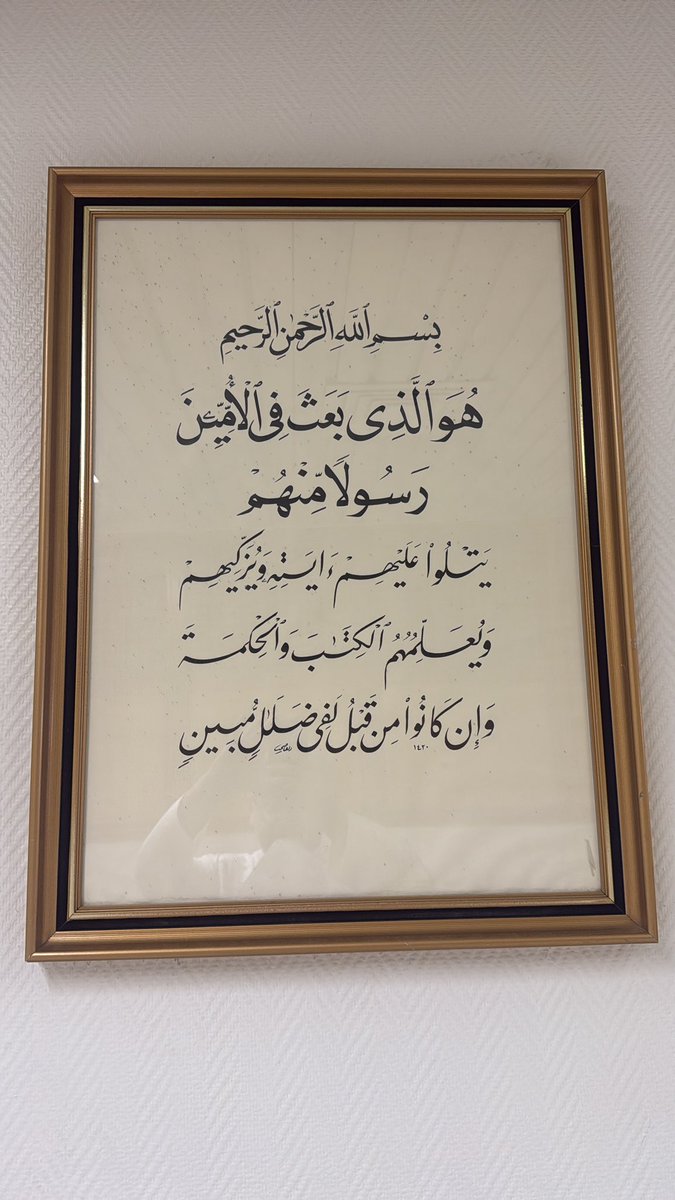 بِسْمِ ٱللَّهِ ٱلرَّحْمَٰنِ ٱلرَّحِيمِ
هُوَ ٱلَّذِى بَعَثَ فِى ٱلْأُمِّيِّۦنَ
رَسُولًا مِّنْهُمْ
يَتْلُوا۟ عَلَيْهِمْ ءَايَٰتِهِۦ وَيُزَكِّيهِمْ
وَيُعَلِّمُهُمُ ٱلْكِتَٰبَ وَٱلْحِكْمَةَ
وَإِن كَانُوا۟ مِن قَبْلُ لَفِى ضَلَٰلٍ مُّبِينٍ
١٤٢٠